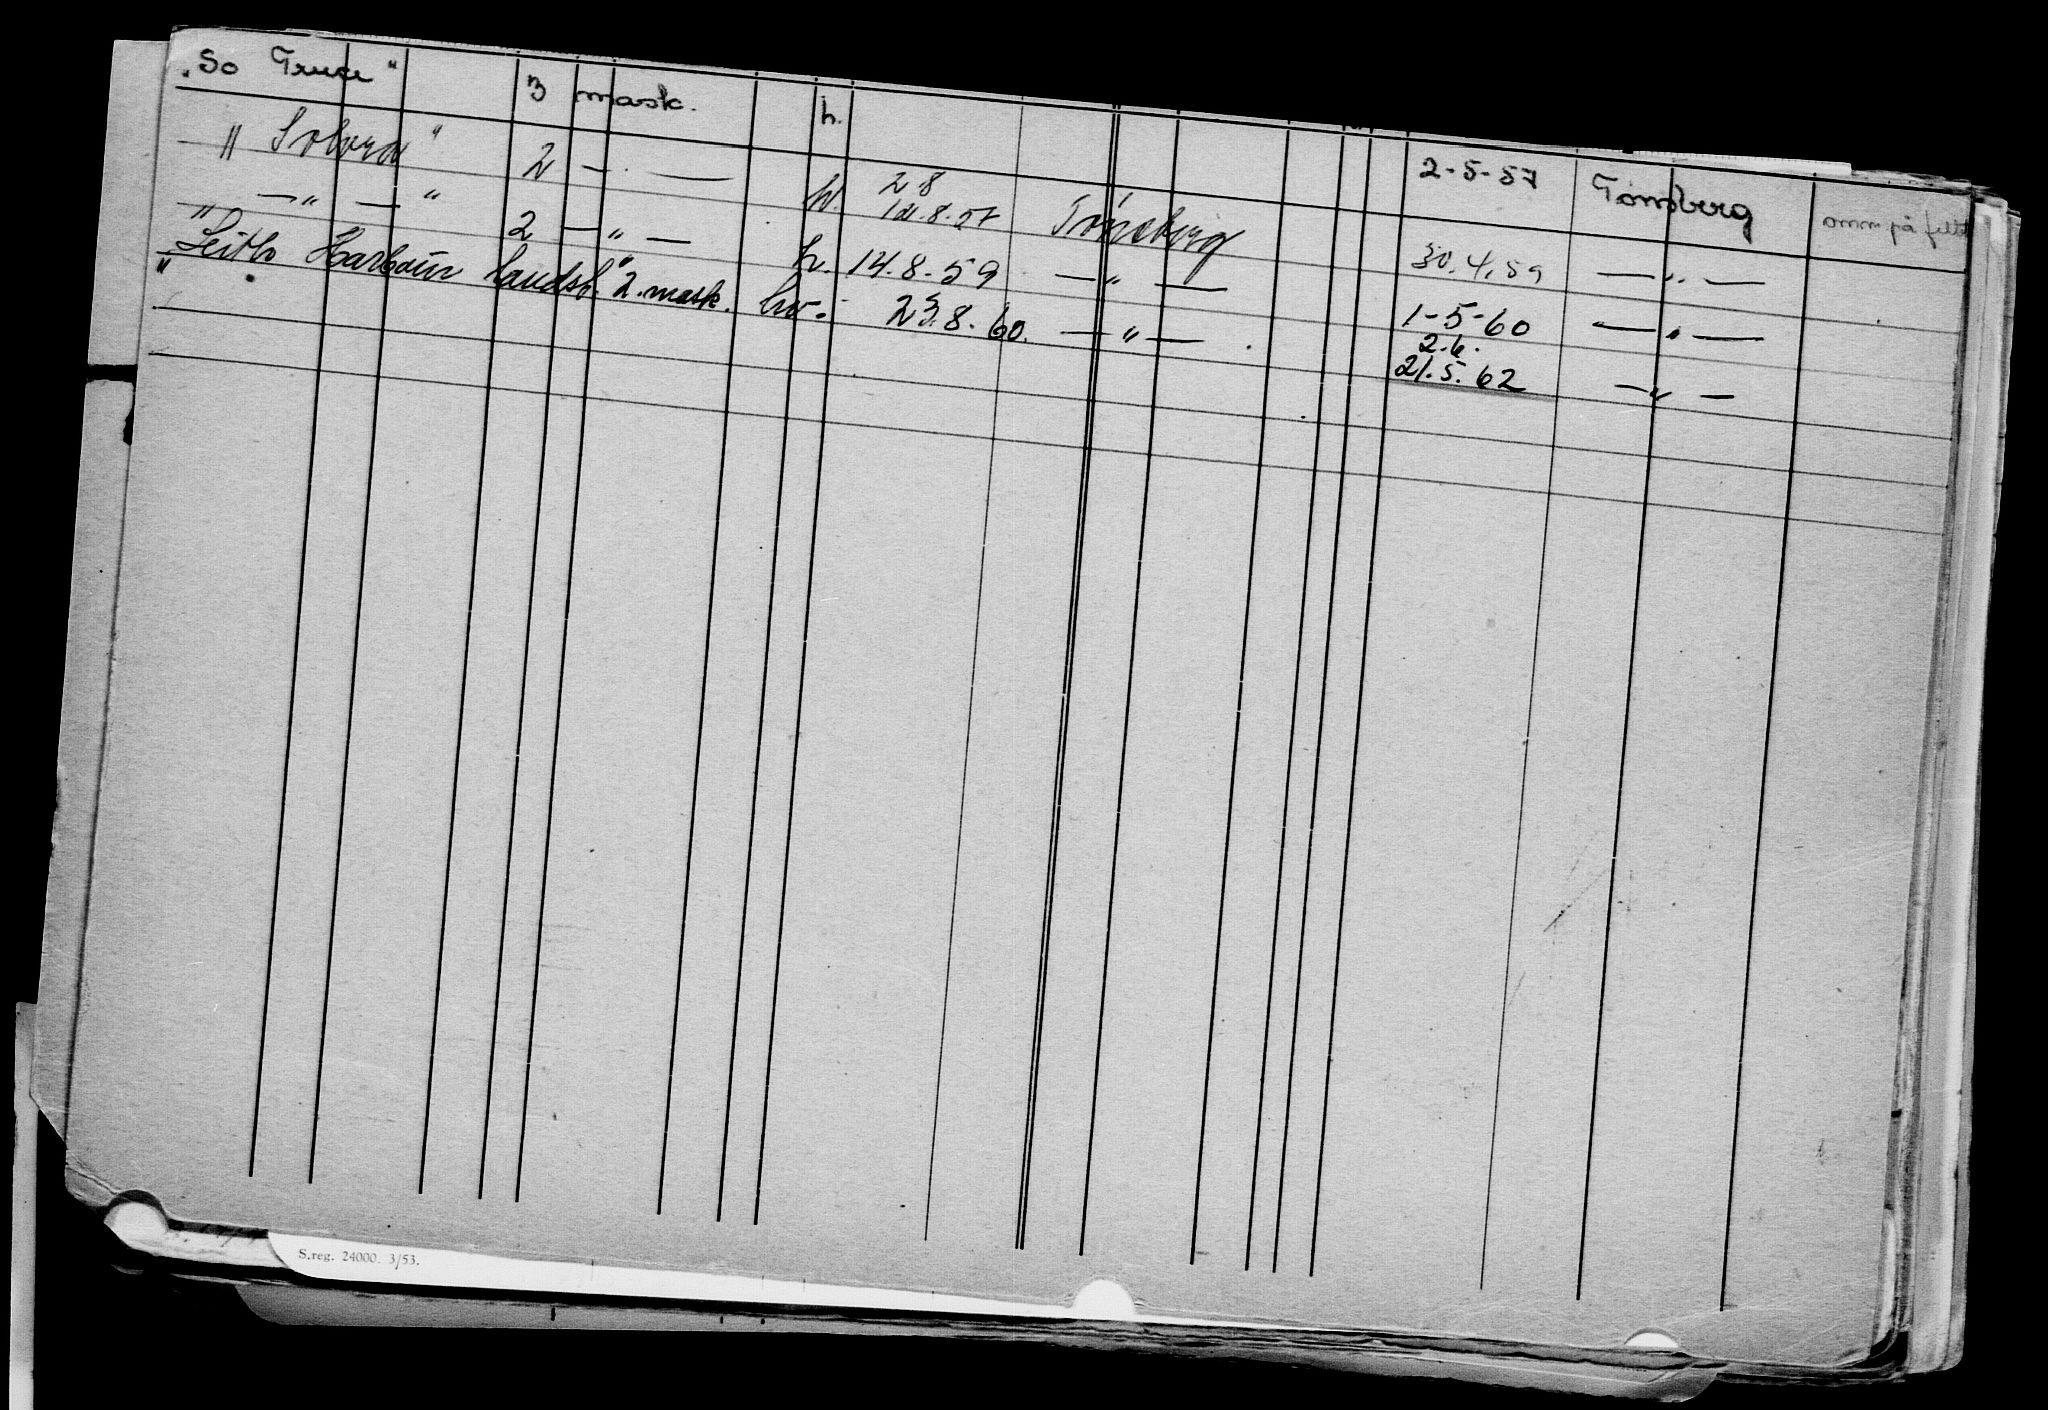 „So Truce“ 3 mask. h. 2-5-57 Tønsberg omm på feltet
„Solvra“ 2 — . — h. 2-8 14.8.57 Tönsberg 30.4.59 — „ —
„ — „ — “ 2 — „ — h. 14.8.59 — „ — 1-5-60 — „ —
„Leith Harbour landst.“ 2. mask. hv. 23.8.60. — „ — . 2.6. 21.5.62 — „ —
S.reg. 24000. 3/53.